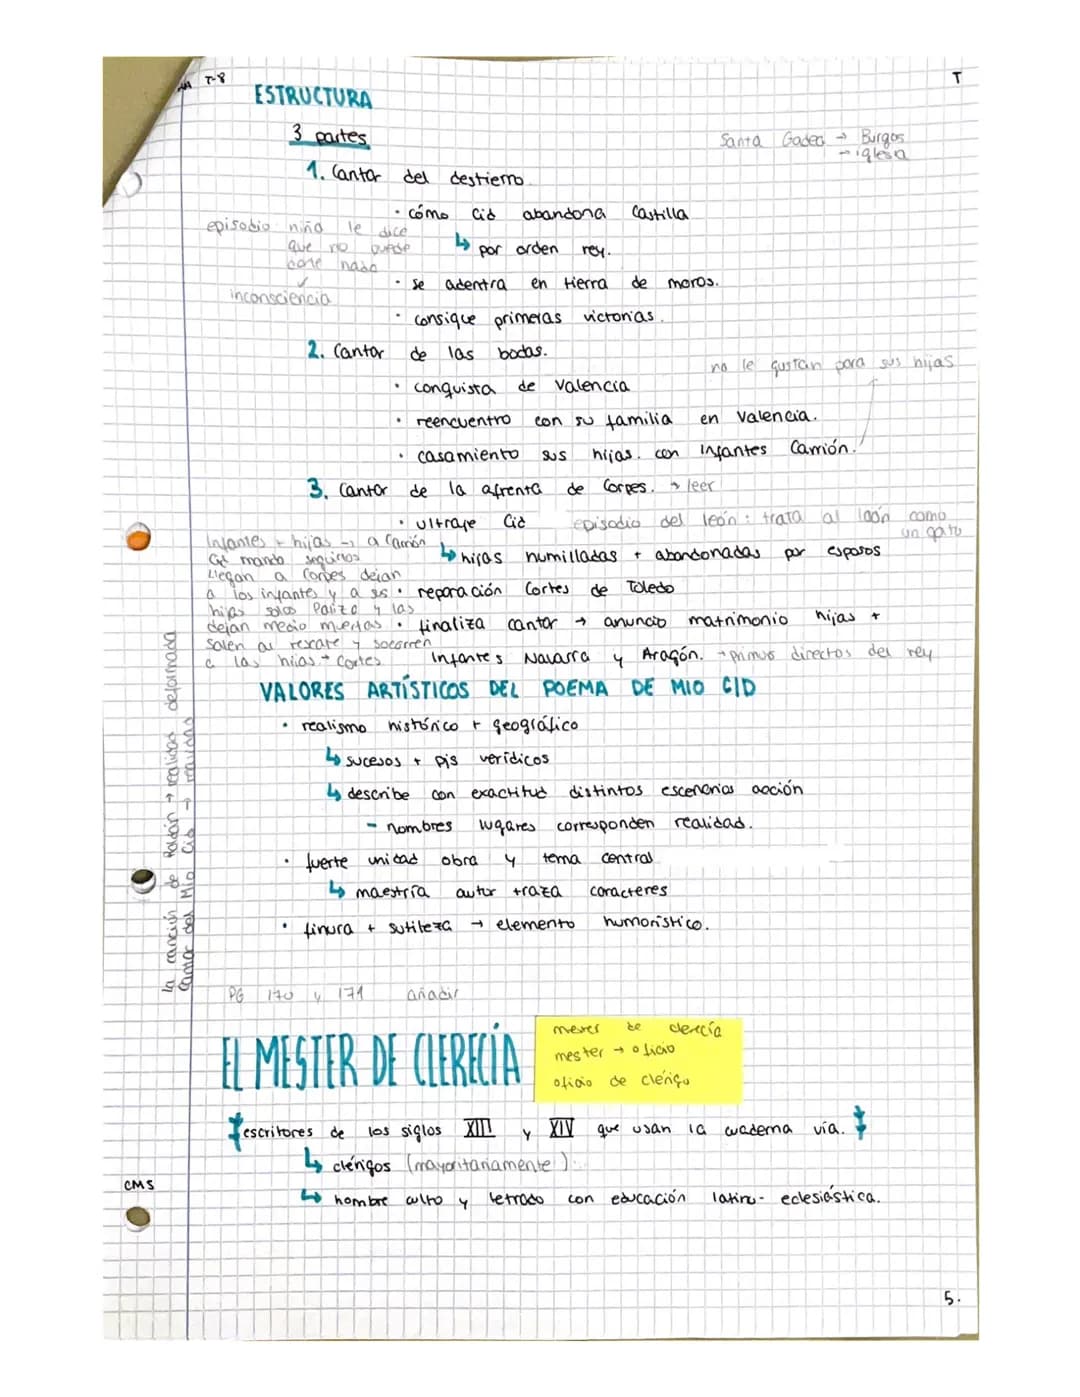 T-8
T
ESTRUCTURA
3 partes
Santa Gadea → Burgos
→ iglesia
1. Cantar del destierro
· cómo Cid abandona Castilla
↳ por orden rey.
episodio niña le dice
que no puede
darle nada
inconsciencia
· se adentra en tierra de moros.
· consigue primeras victorias.
2. Cantar de las bodas.
no le gustan para sus hijas
· conquista de Valencia
· reencuentro con su familia en Valencia.
· casamiento sus hijas. con Infantes Carrión.
3. Cantar de la afrenta de Corpes. → leer
· ultraje Cid
episodio del león: trata al león como
un gato
↳ hijas humilladas + abandonadas por esposos
Infantes + hijas → a Carrión
Cid mando seguirlos
Llegan a Corpes dejan
a los infantes y a sus
hijas solos Paliza y las
dejan medio muertas
salen al rescate y socorren
a las hijas → Cortes
· reparación Cortes de Toledo
· finaliza cantar → anuncio matrimonio hijas +
Infantes Navarra y Aragón. → primos directos del rey
VALORES ARTÍSTICOS DEL POEMA DE MIO CID
· realismo histórico + geográfico
↳ sucesos + pjs verídicos
↳ describe con exactitud distintos escenarios acción
- nombres lugares corresponden realidad.
· fuerte unidad obra y tema central
↳ maestría autor traza caracteres
· finura + sutileza → elemento humorístico.
la canción de Roldán → realidad deformada
Cantar del Mio Cid → realidad
PG 170 y 171 añadir
EL MESTER DE CLERECÍA
mester de clerecía
mester → oficio
oficio de clérigo
escritores de los siglos XIII y XIV que usan la cuaderna vía.
↳ clérigos (mayoritariamente).
↳ hombre culto y letrado con educación latino-eclesiástica.
CMS
5.